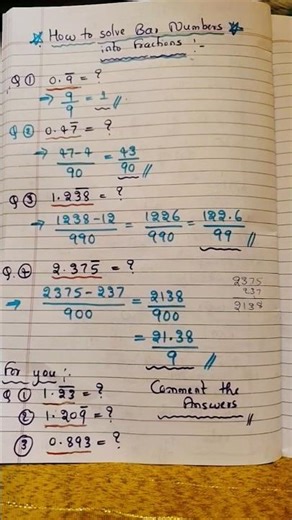 How to solve Bar Numbers
into fractions :-
Q ① 0.9̅ = ?
→ 9/9 = 1 //
Q ② 0.47̅ = ?
→ 47-4/90 = 43/90 //
Q ③ 1.23̅8̅ = ?
→ 1238-12/990 = 1226/990 = 122.6/99 //
Q. ④ 2.375̅ = ?
→ 2375-237/900 = 2138/900
= 21.38/9 //
2375
237
2138
For you :-
Q ① 1.2̅3̅ = ?
② 1.209̅ = ?
③ 0.893 = ?
Comment the
Answers //